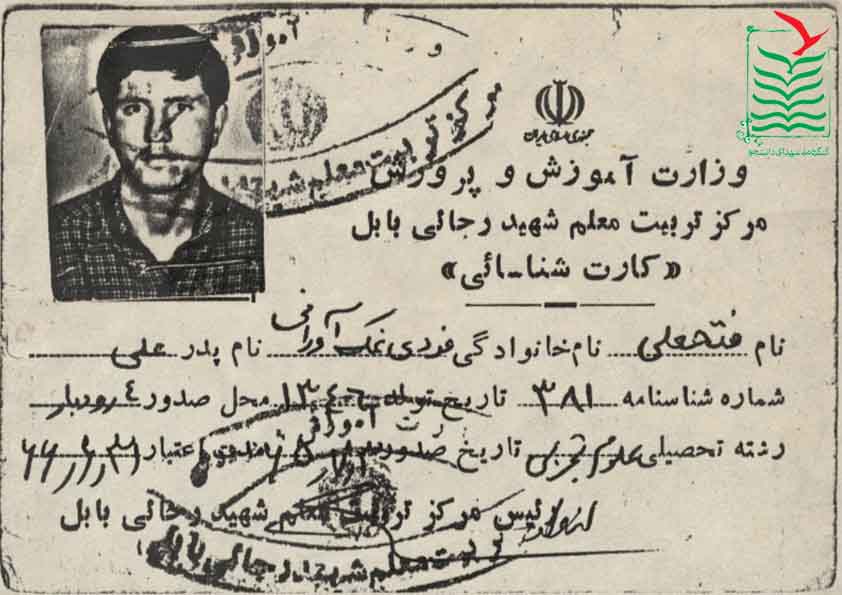 جمهوری اسلامی ایران
کنگره ملی شهدای دانشجو
وزارت آموزش و پرورش
مرکز تربیت معلم شهید رجائی بابل
«کارت شناسائی»
نام فتحعلی نام خانوادگی فردی نمک آورانی نام پدر علی
شماره شناسنامه ۳۸۱ تاریخ تولد محل صدور ٤ رودبار
رشته تحصیلی علوم تجربی تاریخ صدور اعتبار
رئیس مرکز تربیت معلم شهید رجائی بابل
آموزش و
مرکز تربیت معلم شهید رجائی
رت آموزش
تربیت معلم شهید رجائی بابل